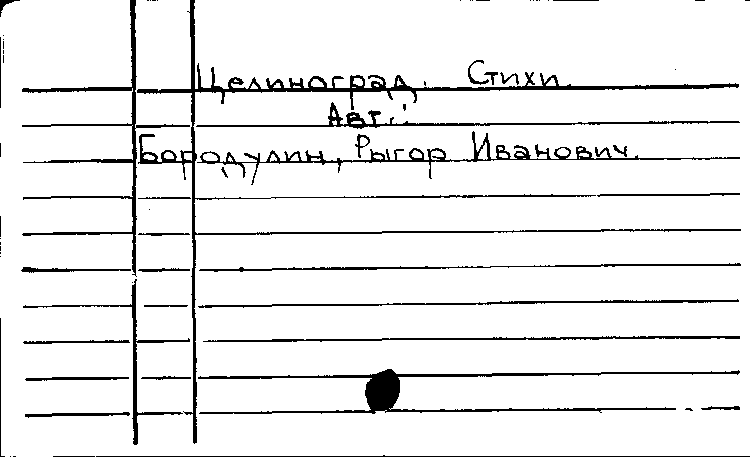 Целиноград. Стихи.
Авт.:
Бородулин, Рыгор Иванович.